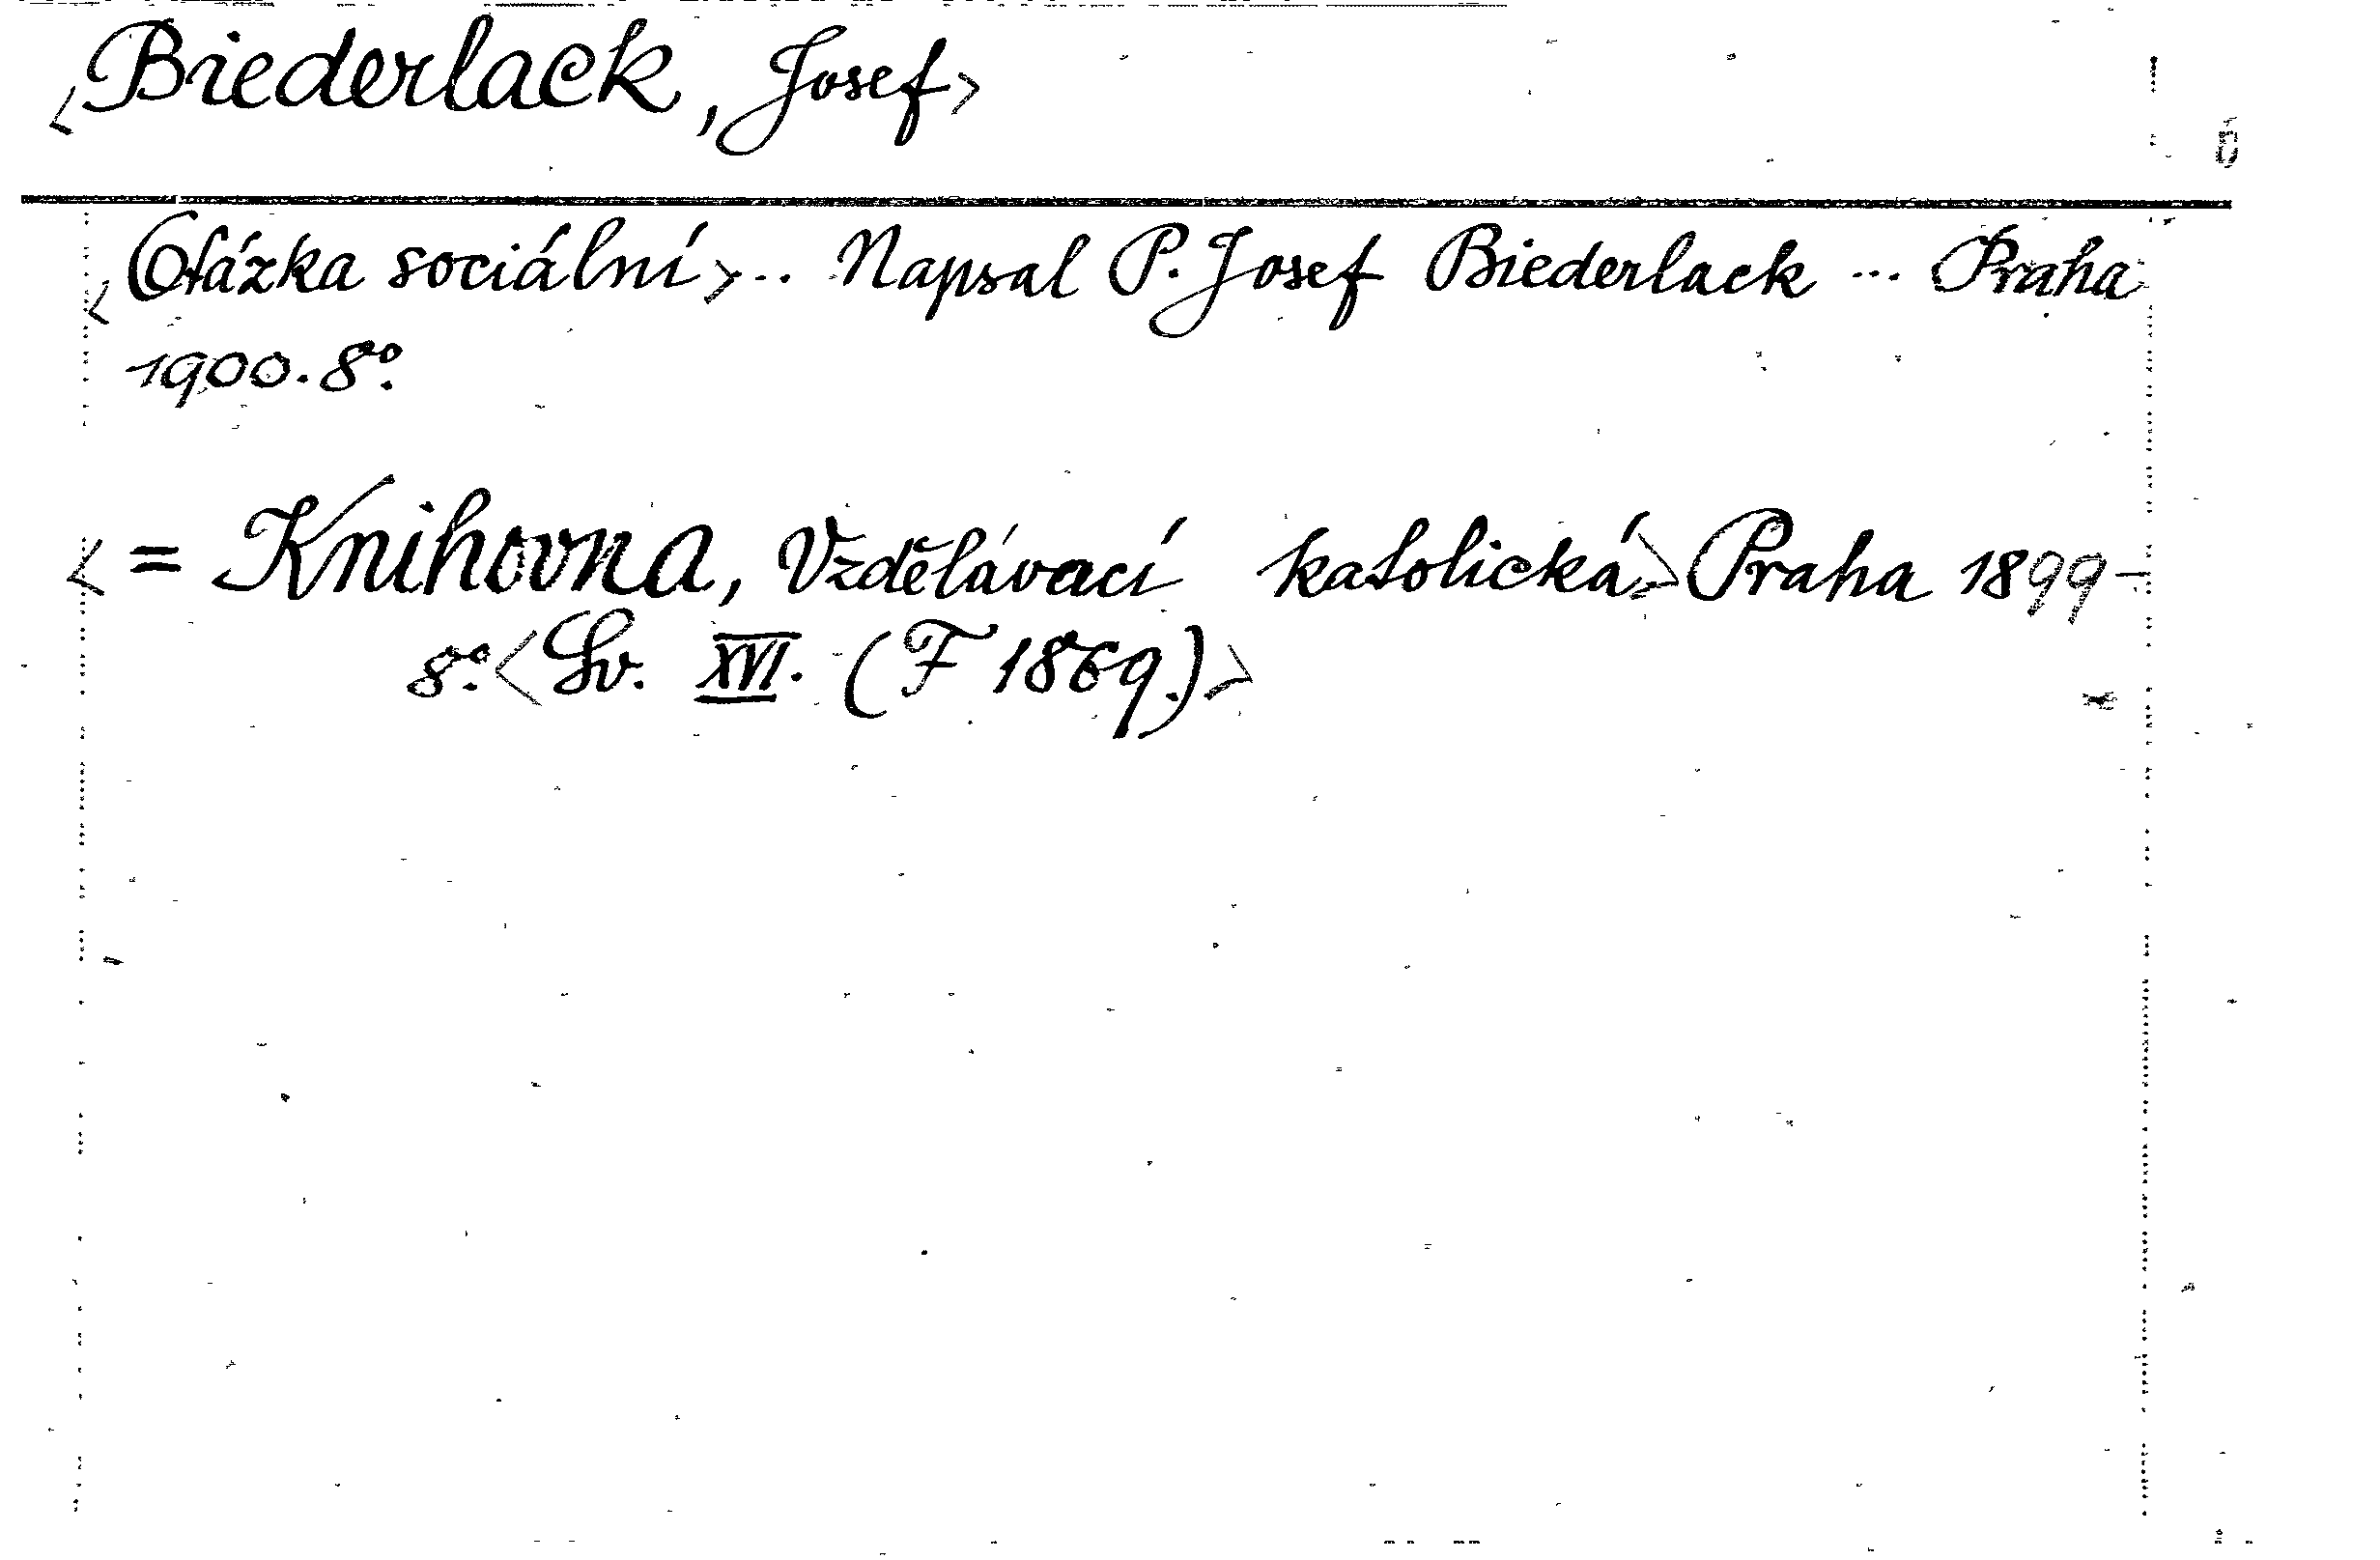 <Biederlack, Josef>
<Otázka sociální>... Napsal P. Josef Biederlack ... Praha
1900. 8°.
<= Knihovna, Vzdělávací katolická> Praha 1899-
8°. <Sv. XVI. (F 1869.)>